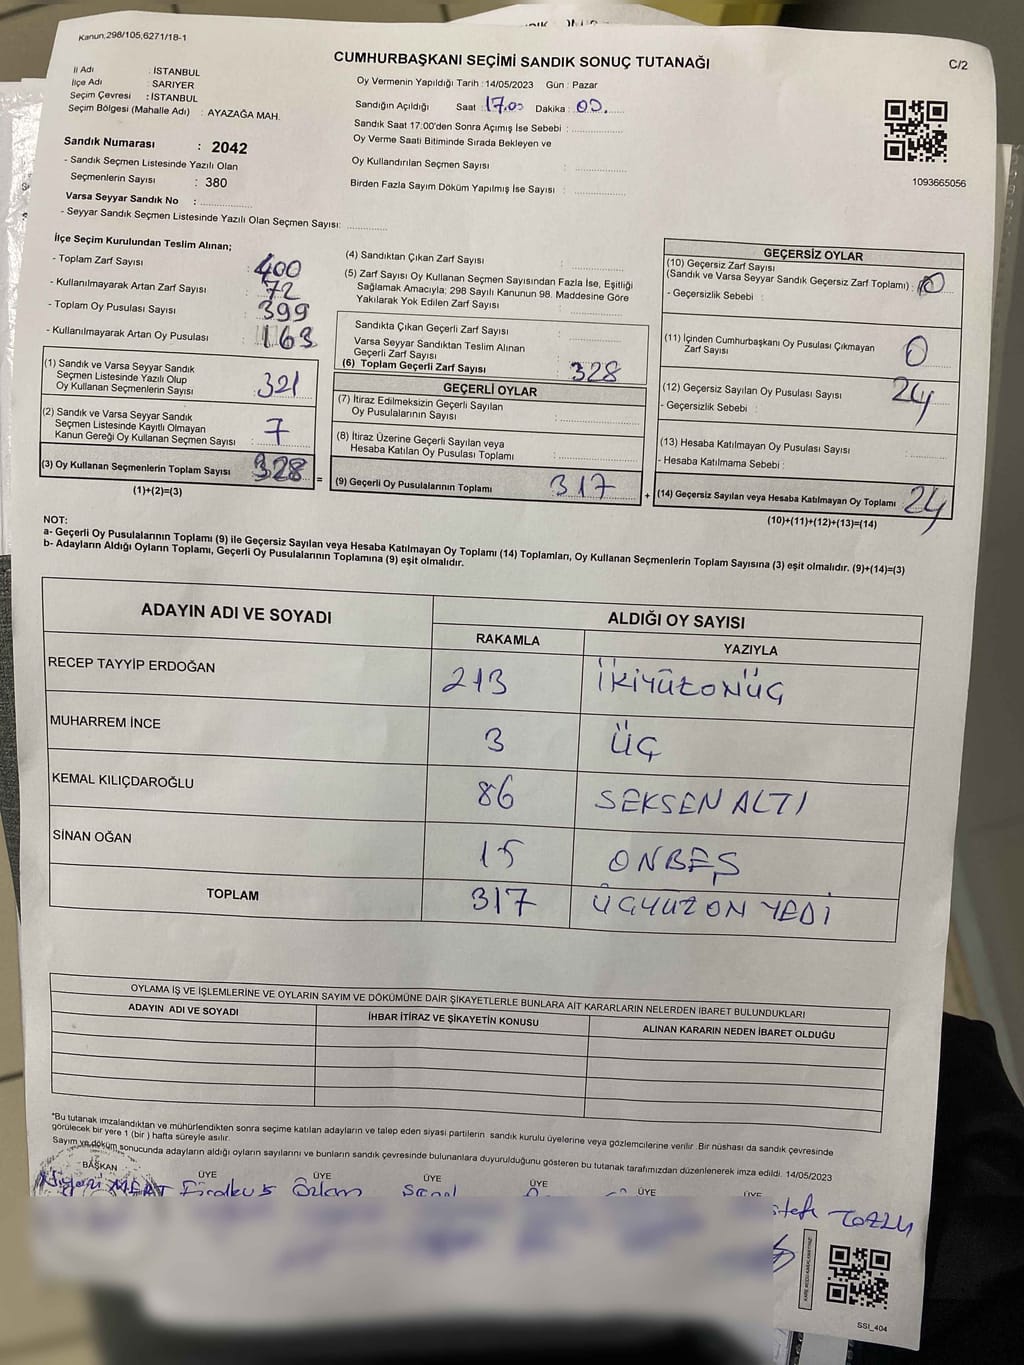 Kanun,298/105,6271/18-1
CUMHURBAŞKANI SEÇİMİ SANDIK SONUÇ TUTANAĞI
C/2
İl Adı : İSTANBUL
İlçe Adı : SARIYER
Seçim Çevresi : İSTANBUL
Seçim Bölgesi (Mahalle Adı) : AYAZAĞA MAH.
Oy Vermenin Yapıldığı Tarih : 14/05/2023 Gün : Pazar
Sandığın Açıldığı Saat : 17.00 Dakika : 00.
Sandık Saat 17:00'den Sonra Açımış İse Sebebi :
Oy Verme Saati Bitiminde Sırada Bekleyen ve
Oy Kullandırılan Seçmen Sayısı :
Birden Fazla Sayım Döküm Yapılmış İse Sayısı :
1093665056
Sandık Numarası : 2042
- Sandık Seçmen Listesinde Yazılı Olan
Seçmenlerin Sayısı : 380
Varsa Seyyar Sandık No :
- Seyyar Sandık Seçmen Listesinde Yazılı Olan Seçmen Sayısı:
İlçe Seçim Kurulundan Teslim Alınan;
- Toplam Zarf Sayısı : 400
- Kullanılmayarak Artan Zarf Sayısı : 72
- Toplam Oy Pusulası Sayısı : 399
- Kullanılmayarak Artan Oy Pusulası : 163
(1) Sandık ve Varsa Seyyar Sandık
Seçmen Listesinde Yazılı Olup
Oy Kullanan Seçmenlerin Sayısı : 321
(2) Sandık ve Varsa Seyyar Sandık
Seçmen Listesinde Kayıtlı Olmayan
Kanun Gereği Oy Kullanan Seçmen Sayısı : 7
(3) Oy Kullanan Seçmenlerin Toplam Sayısı : 328 =
(1)+(2)=(3)
(4) Sandıktan Çıkan Zarf Sayısı :
(5) Zarf Sayısı Oy Kullanan Seçmen Sayısından Fazla İse, Eşitliği
Sağlamak Amacıyla; 298 Sayılı Kanunun 98. Maddesine Göre
Yakılarak Yok Edilen Zarf Sayısı :
Sandıkta Çıkan Geçerli Zarf Sayısı :
Varsa Seyyar Sandıktan Teslim Alınan
Geçerli Zarf Sayısı :
(6) Toplam Geçerli Zarf Sayısı : 328
GEÇERLİ OYLAR
(7) İtiraz Edilmeksizin Geçerli Sayılan
Oy Pusulalarının Sayısı :
(8) İtiraz Üzerine Geçerli Sayılan veya
Hesaba Katılan Oy Pusulası Toplamı :
(9) Geçerli Oy Pusulalarının Toplamı : 317 +
GEÇERSİZ OYLAR
(10) Geçersiz Zarf Sayısı
(Sandık ve Varsa Seyyar Sandık Geçersiz Zarf Toplamı) : 0
- Geçersizlik Sebebi :
(11) İçinden Cumhurbaşkanı Oy Pusulası Çıkmayan
Zarf Sayısı : 0
(12) Geçersiz Sayılan Oy Pusulası Sayısı : 24
- Geçersizlik Sebebi :
(13) Hesaba Katılmayan Oy Pusulası Sayısı :
- Hesaba Katılmama Sebebi :
(14) Geçersiz Sayılan veya Hesaba Katılmayan Oy Toplamı 24
(10)+(11)+(12)+(13)=(14)
NOT:
a- Geçerli Oy Pusulalarının Toplamı (9) ile Geçersiz Sayılan veya Hesaba Katılmayan Oy Toplamı (14) Toplamları, Oy Kullanan Seçmenlerin Toplam Sayısına (3) eşit olmalıdır. (9)+(14)=(3)
b- Adayların Aldığı Oyların Toplamı, Geçerli Oy Pusulalarının Toplamına (9) eşit olmalıdır.
ADAYIN ADI VE SOYADI
ALDIĞI OY SAYISI
RAKAMLA YAZIYLA
RECEP TAYYİP ERDOĞAN 213 İKİYÜZONÜÇ
MUHARREM İNCE 3 ÜÇ
KEMAL KILIÇDAROĞLU 86 SEKSEN ALTI
SİNAN OĞAN 15 ONBEŞ
TOPLAM 317 ÜÇYÜZON YEDİ
OYLAMA İŞ VE İŞLEMLERİNE VE OYLARIN SAYIM VE DÖKÜMÜNE DAİR ŞİKAYETLERLE BUNLARA AİT KARARLARIN NELERDEN İBARET BULUNDUKLARI
ADAYIN ADI VE SOYADI İHBAR İTİRAZ VE ŞİKAYETİN KONUSU ALINAN KARARIN NEDEN İBARET OLDUĞU
*Bu tutanak imzalandıktan ve mühürlendikten sonra seçime katılan adayların ve talep eden siyasi partilerin sandık kurulu üyelerine veya gözlemcilerine verilir. Bir nüshası da sandık çevresinde
görülecek bir yere 1 (bir ) hafta süreyle asılır.
Sayım ve döküm sonucunda adayların aldığı oyların sayılarını ve bunların sandık çevresinde bulunanlara duyurulduğunu gösteren bu tutanak tarafımızdan düzenlenerek imza edildi. 14/05/2023
BAŞKAN ÜYE ÜYE ÜYE ÜYE ÜYE ÜYE
MERT Özlem
SSI_404